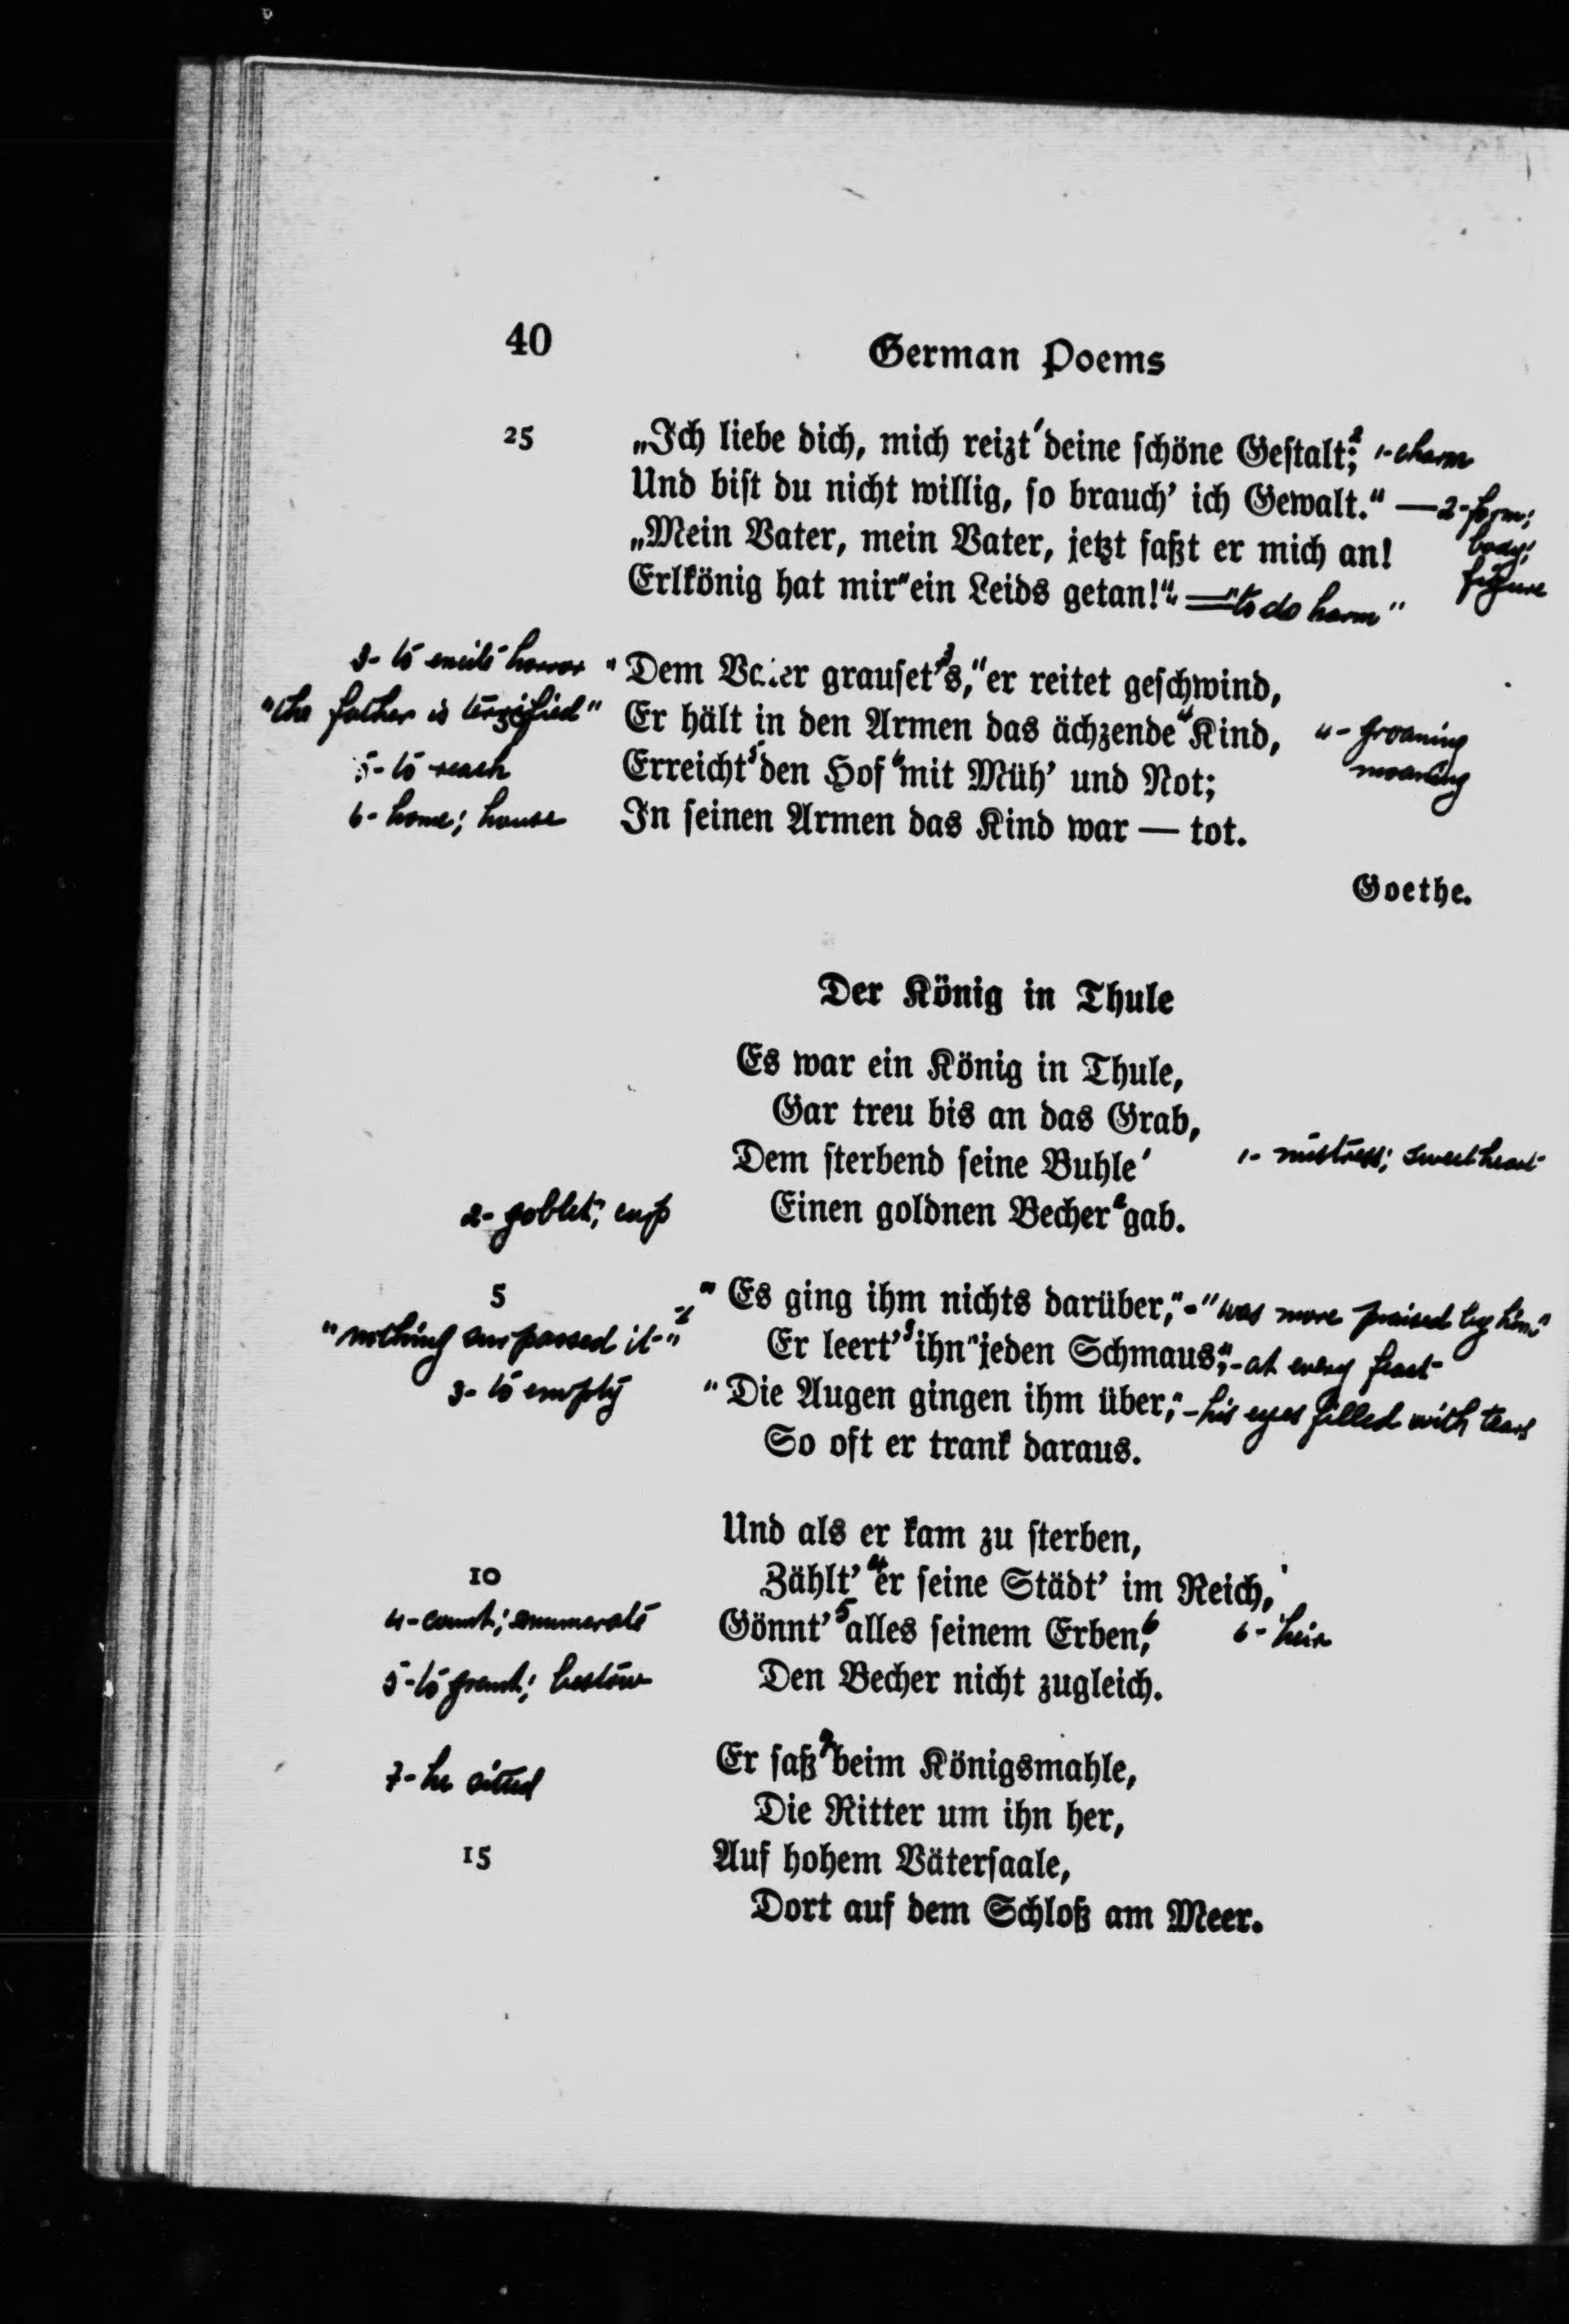 40
German Poems
25 „Ich liebe dich, mich reizt' deine schöne Gestalt;² 1- charm
Und bist du nicht willig, so brauch' ich Gewalt.“ — 2- form;
body;
„Mein Vater, mein Vater, jetzt faßt er mich an!
figure
Erlkönig hat mir "ein Leids getan!“" — "to do harm"
3- to excite horror "Dem Vater grauset's,³" er reitet geschwind,
"the father is terrified" Er hält in den Armen das ächzende⁴ Kind, 4- groaning
moaning
5- to reach Erreicht⁵ den Hof⁶ mit Müh' und Not;
6- home; house In seinen Armen das Kind war — tot.
Goethe.
Der König in Thule
Es war ein König in Thule,
Gar treu bis an das Grab,
Dem sterbend seine Buhle¹ 1- mistress; sweetheart
2- goblet; cup Einen goldnen Becher² gab.
5 "Es ging ihm nichts darüber," - "was more praised by him"
"nothing surpassed it" Er leert'³ ihn "jeden Schmaus;" - at every feast
3- to empty "Die Augen gingen ihm über," - his eyes filled with tears
So oft er trank daraus.
Und als er kam zu sterben,
10 Zählt'⁴ er seine Städt' im Reich,
4- count; enumerate Gönnt'⁵ alles seinem Erben,⁶ 6- heir
5- to grant; bestow Den Becher nicht zugleich.
7- he sitted Er saß⁷ beim Königsmahle,
Die Ritter um ihn her,
15 Auf hohem Vätersaale,
Dort auf dem Schloß am Meer.